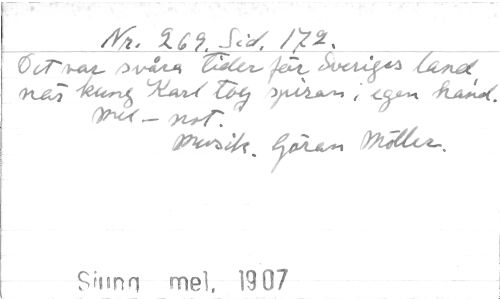 Nr. 269. Sid. 172.
Det var svåra tider för Sveriges land
när kung Karl tog spiran i egen hand.
Mel – not.
Musik. Göran Möller.
Sjung mel. 1907